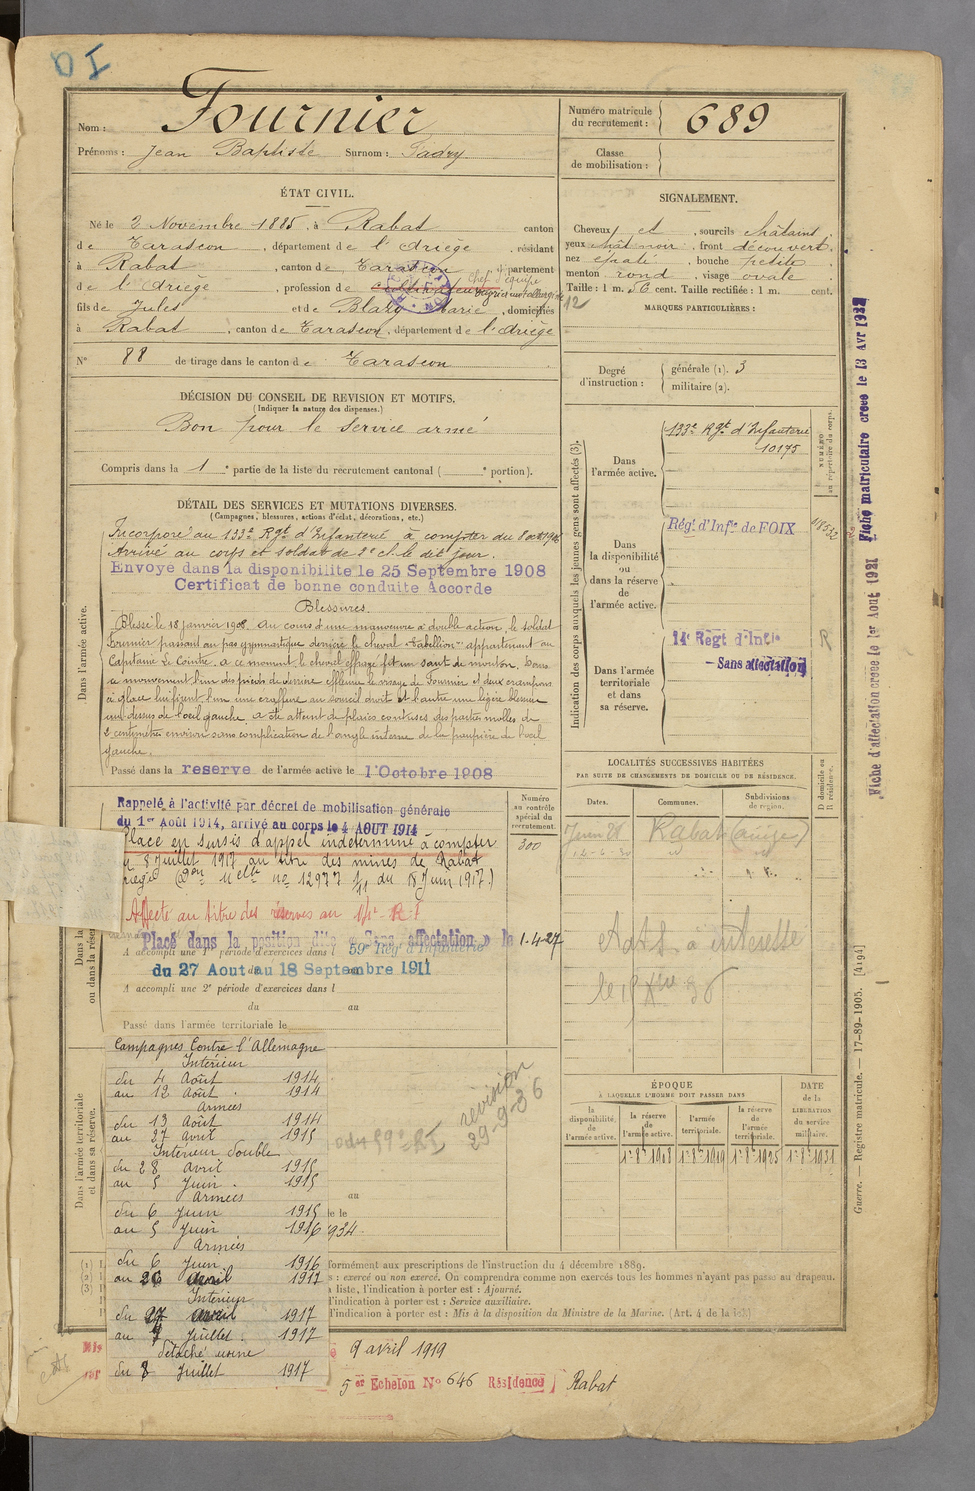 Nom : Fournier
Prénoms : Jean Baptiste Surnom : Tadry
Numéro matricule du recrutement : 689
Classe de mobilisation :
ÉTAT CIVIL.
Né le 2 Novembre 1885, à Rabat canton
de Tarascon, département de l'Ariège, résidant
à Rabat, canton de Tarascon, département
de l'Ariège, profession de cultivateur Chef d'équipe
fils de Jules et de Blazy Marie, domiciliés
à Rabat, canton de Tarascon, département de l'Ariège
N° 88 de tirage dans le canton de Tarascon
DÉCISION DU CONSEIL DE REVISION ET MOTIFS.
(Indiquer la nature des dispenses.)
Bon pour le service armé
Compris dans la 1e partie de la liste du recrutement cantonal ( e portion).
SIGNALEMENT.
Cheveux et, sourcils châtains
yeux, front découvert,
nez épaté, bouche petite
menton rond, visage ovale
Taille : 1 m. cent. Taille rectifiée : 1 m. cent.
MARQUES PARTICULIÈRES :
Degré d'instruction : générale (1). 3
militaire (2).
DÉTAIL DES SERVICES ET MUTATIONS DIVERSES.
(Campagnes, blessures, actions d'éclat, décorations, etc.)
Dans l'armée active.
Incorporé au 133e Rgt d'Infanterie à compter du 8 oct 1906
Arrivé au corps et soldat de 2e cl. le dit jour.
Envoyé dans la disponibilité le 25 Septembre 1908
Certificat de bonne conduite Accordé
Blessures.
Blessé le 18 janvier 1908. Au cours d'une manoeuvre à double action, le soldat
Fournier passant au pas gymnastique derrière le cheval "Tabellion" appartenant au
Capitaine Le Cointre. a ce moment, le cheval effrayé fit un saut de mouton. Dans
ce mouvement l'un des pieds de derrière effleura le visage de Fournier et deux crampons
à glace lui firent l'un une éraflure au sourcil droit et l'autre une légère blessure
au dessus de l'oeil gauche. a été atteint de plaies contuses des parties molles de
2 centimètres environ sans complication de l'angle interne de la paupière de l'oeil
gauche.
Passé dans la reserve de l'armée active le 1 Octobre 1908
Numéro au contrôle spécial du recrutement.
300
Rappelé à l'activité par décret de mobilisation générale
du 1er Août 1914, arrivé au corps le 4 AOUT 1914
Placé en sursis d'appel indéterminé à compter
8 Juillet 1917 au titre des mines de Rabat
no 12977 du 18 Juin 1917.)
Affecté au titre des réserves au
Placé dans la position dite « Sans affectation » le 1-4-27
A accompli une 1re période d'exercices dans l 59e Régt d'Infanterie
du 27 Aout au 18 Septembre 1911
A accompli une 2e période d'exercices dans l
du au
Passé dans l'armée territoriale le
Dans l'armée territoriale et dans sa réserve.
Campagnes Contre l'Allemagne
Intérieur
du 4 Août 1914
au 12 Août 1914
Armées
du 13 Août 1914
au 27 avril 1915
Intérieur double
du 28 avril 1915
au 5 Juin 1915
Armées
du 6 Juin 1915
au 5 Juin 1916
Armées
du 6 Juin 1916
au 26 avril 1917
Intérieur
du 27 avril 1917
au 7 Juillet 1917
détaché usine
du 8 Juillet 1917
revision
29-9-36
au
Indication des corps auxquels les jeunes gens sont affectés (3).
Dans l'armée active.
133e Rgt d'Infanterie
10175
NUMÉRO au répertoire du corps.
Dans la disponibilité ou dans la réserve de l'armée active.
Régt d'Infie de FOIX
Dans l'armée territoriale et dans sa réserve.
14e Regt d'Infie
- Sans affectation
R
LOCALITÉS SUCCESSIVES HABITÉES
PAR SUITE DE CHANGEMENTS DE DOMICILE OU DE RÉSIDENCE.
Dates. Communes. Subdivisions de région. D domicile ou R résidence.
Rabat (Ariège)
ÉPOQUE
À LAQUELLE L'HOMME DOIT PASSER DANS
DATE de la LIBÉRATION du service militaire.
la disponibilité de l'armée active.
la réserve de l'armée active.
l'armée territoriale.
la réserve de l'armée territoriale.
1er 8bre 1908 1er 8bre 1919 1er 8bre 1925 1er 8bre 1931
formément aux prescriptions de l'instruction du 4 décembre 1889.
s : exercé ou non exercé. On comprendra comme non exercés tous les hommes n'ayant pas passé au drapeau.
liste, l'indication à porter est : Ajourné.
l'indication à porter est : Service auxiliaire.
l'indication à porter est : Mis à la disposition du Ministre de la Marine. (Art. 4 de la
9 avril 1919
5er Echelon No 646 Résidence Rabat
Fiche matriculaire créée le 13 Avr 1932
Fiche d'affectation créée le 1er Aout 1921
Guerre. — Registre matricule. — 17-89-1905. [4194]